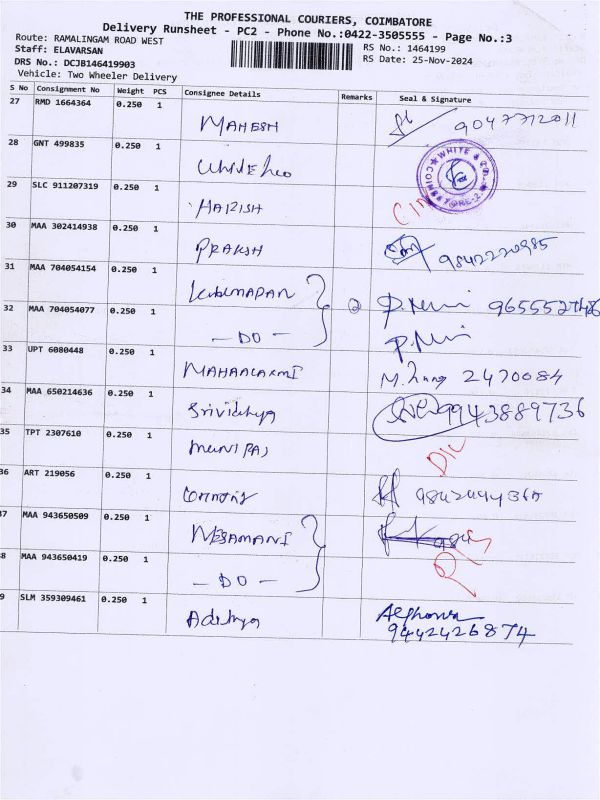 THE PROFESSIONAL COURIERS, COIMBATORE
Delivery Runsheet - PC2 - Phone No.:0422-3505555 - Page No.:3
Route: RAMALINGAM ROAD WEST
RS No.: 1464199
Staff: ELAVARSAN
RS Date: 25-Nov-2024
DRS No.: DCJB146419903
Vehicle: Two Wheeler Delivery
S No Consignment No Weight PCS Consignee Details Remarks Seal & Signature
27 RMD 1664364 0.250 1 MAHESH 9047712011
28 GNT 499835 0.250 1 White & Co
WHITE & CO. COIMBATORE-2
29 SLC 911207319 0.250 1 HARISH
30 MAA 302414938 0.250 1 PRAKSH 9842220985
31 MAA 704054154 0.250 1
32 MAA 704054077 0.250 1 - DO -
33 UPT 6080448 0.250 1 MAHAALAXMI 2470084
34 MAA 650214636 0.250 1 Srividhya 9943889736
35 TPT 2307610 0.250 1 MUNIRAJ
36 ART 219056 0.250 1
37 MAA 943650509 0.250 1 NESAMANI
38 MAA 943650419 0.250 1 - DO -
39 SLM 359309461 0.250 1 Adithya
9442426874